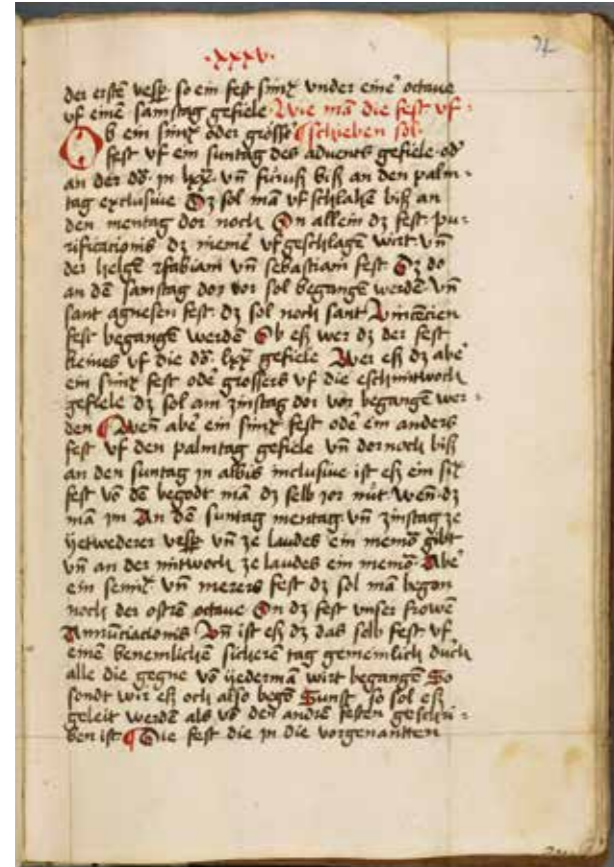 ·xxxv·
der erstē vesp̄ so ein fest simꝉ vnder eine᷎ octaue
vf eine᷎ samstag gefiele Wie mā die fest vf-
Ob ein simꝉ oder grosso᷎ ¶ schieben sol·
fest vf ein suntag des aduents gefiele od᷎
an der dō· in lxx· vn̄ furuß biß an den palm-
tag exclusiue Dz sol mā vf schlahē biß an
den mentag dor noch On allein dz fest pu-
rificationis dz niemē vf geschlagē wirt vn̄
der helgē fabiani vn̄ sebastiani fest Dz do
an dē samstag dor vor sol begangē werdē vn̄
sant agnesen fest· dz sol noch sant Vincēcien
fest begangē werdē Ob eß wer dz der fest
keines vf die dō· lxx gefiele Wer eß dz abe᷎
ein simꝉ fest ode᷎ grossers vf die eschmitwoch
gefiele dz sol am zinstag dor vor begangē wer-
den ¶ Wen̄ abe᷎ ein simꝉ fest ode᷎ ein anders
fest vf den palmtag gefiele vn̄ dornoch biß
an den suntag in albis inclusiue ist eß ein
fest vō dē begodt mā dz selb jor nüt wen̄ dz
mā jm An dē suntag mentag vn̄ zinstag ze
yetwederer vesp̄ vn̄ ze laudes ein memō gibt
vn̄ an der mitwoch ze laudes ein memō· Abe᷎
ein semiꝉ· vn̄ merers fest dz sol mā begon
noch der ostrē octaue On dz fest vnser frowē
Annūciacionis Vn̄ ist eß dz das selb fest vf
eine᷎ benemlichē sicherē tag gemeinlich duch
alle die gegne vō yedermā wirt begangē So
sondt wir eß och also begō Sunst so sol eß
geleit werdē als vō den andrē festen geschri-
ben ist ¶ Die fest die in die vorgenantten